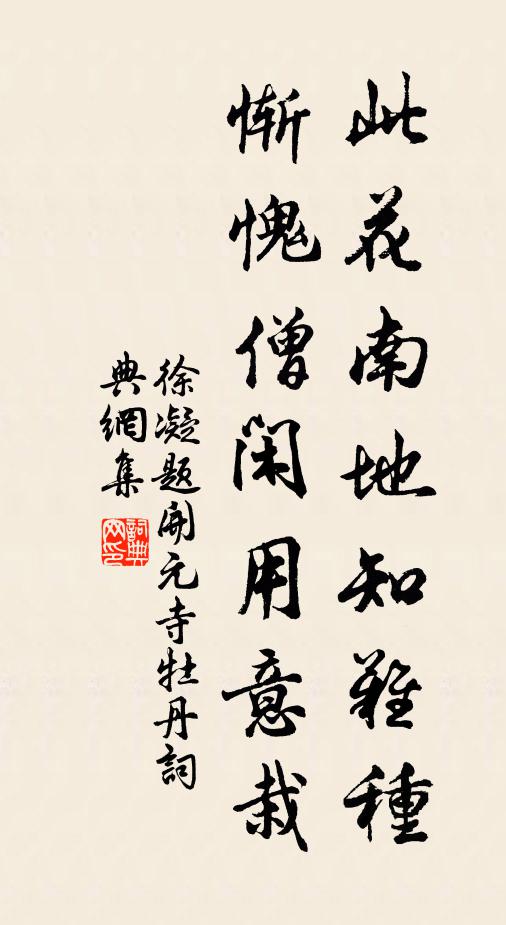 此花南地知難種
慚愧僧閑用意栽
徐凝題開元寺牡丹詞
典網集
詞典
网印